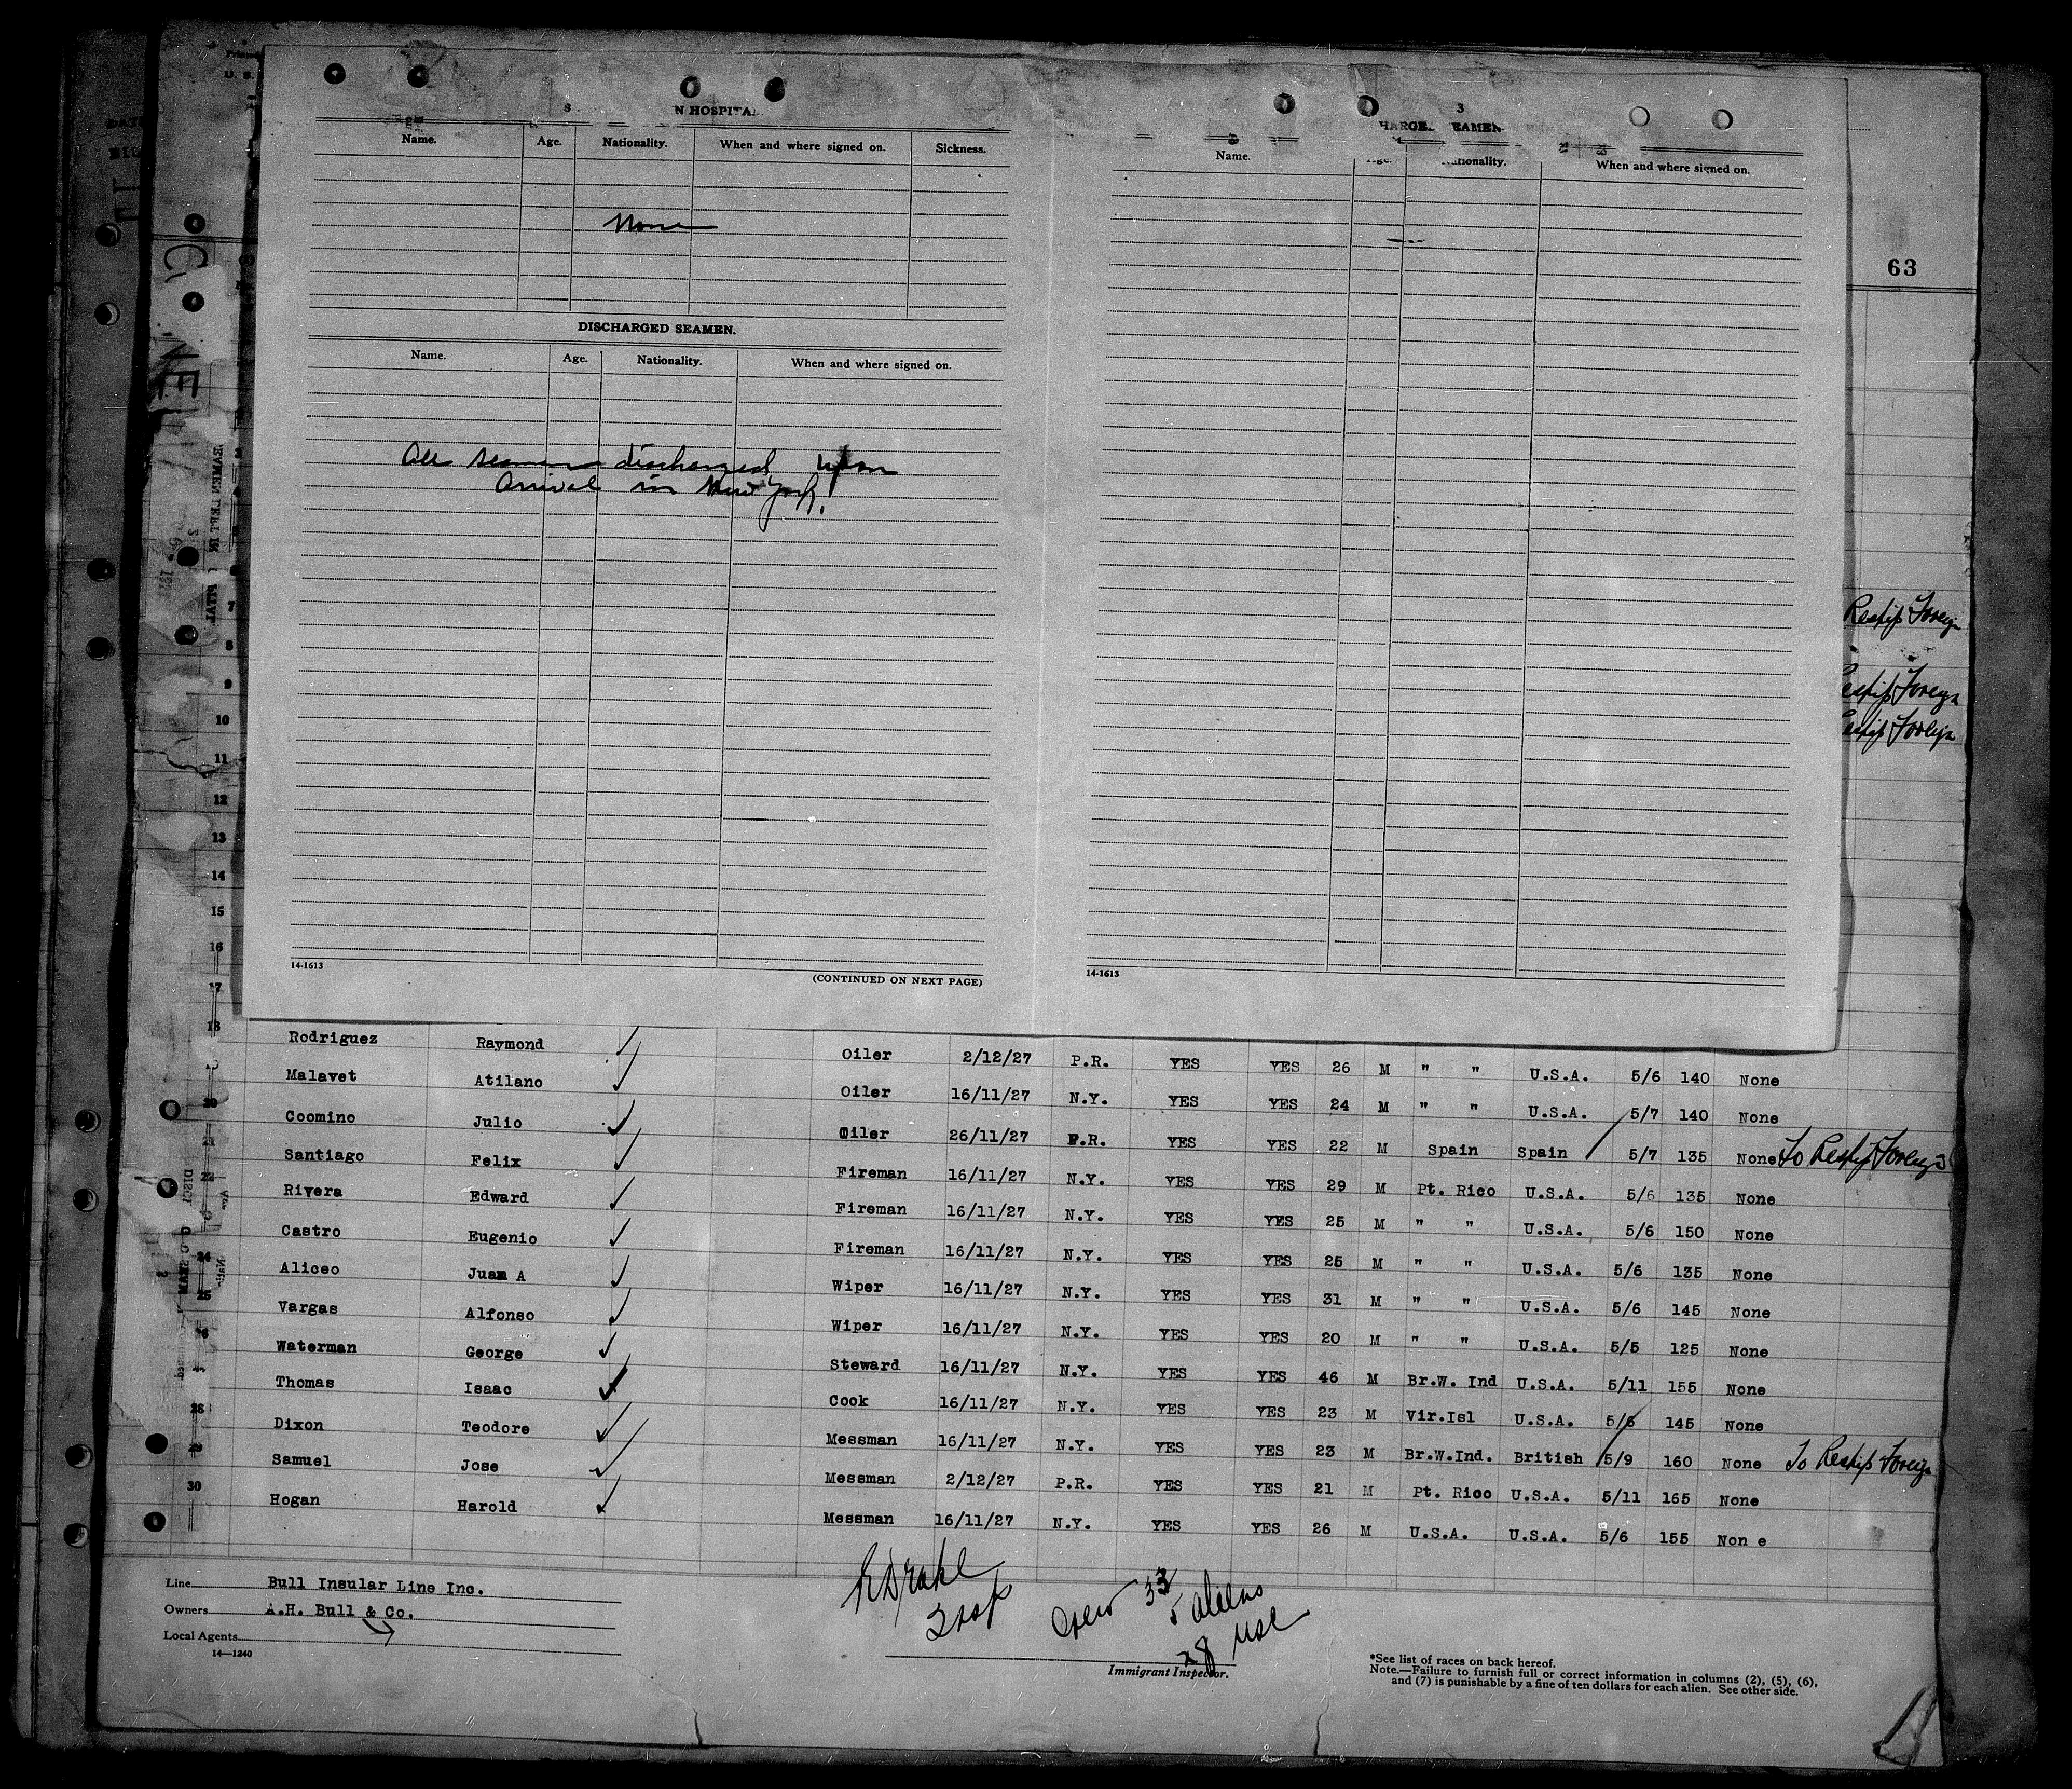 N HOSPITAL
Name. Age. Nationality. When and where signed on. Sickness.
None
DISCHARGED SEAMEN.
Name. Age. Nationality. When and where signed on.
All seamen discharged upon
arrival in New York.
14-1613
(CONTINUED ON NEXT PAGE)
3
Name. When and where signed on.
14-1613
63
Reship Foreign
Reship Foreign
Reship Foreign
7
8
9
10
11
12
13
14
15
16
17
18
Rodriguez Raymond Oiler 2/12/27 P.R. YES YES 26 M " " U.S.A. 5/6 140 None
Malavet Atilano Oiler 16/11/27 N.Y. YES YES 24 M " " U.S.A. 5/7 140 None
20 Coomino Julio Oiler 26/11/27 P.R. YES YES 22 M Spain Spain 5/7 135 None To Reship Foreign
21 Santiago Felix Fireman 16/11/27 N.Y. YES YES 29 M Pt. Rico U.S.A. 5/6 135 None
22 Rivera Edward Fireman 16/11/27 N.Y. YES YES 25 M " " U.S.A. 5/6 150 None
Castro Eugenio Fireman 16/11/27 N.Y. YES YES 25 M " " U.S.A. 5/6 135 None
24 Aliceo Juan A Wiper 16/11/27 N.Y. YES YES 31 M " " U.S.A. 5/6 145 None
25 Vargas Alfonso Wiper 16/11/27 N.Y. YES YES 20 M " " U.S.A. 5/5 125 None
26 Waterman George Steward 16/11/27 N.Y. YES YES 46 M Br.W. Ind U.S.A. 5/11 155 None
Thomas Isaac Cook 16/11/27 N.Y. YES YES 23 M Vir.Isl U.S.A. 5/6 145 None
28 Dixon Teodore Messman 16/11/27 N.Y. YES YES 23 M Br.W.Ind. British 5/9 160 None To Reship Foreign
29 Samuel Jose Messman 2/12/27 P.R. YES YES 21 M Pt. Rico U.S.A. 5/11 165 None
30 Hogan Harold Messman 16/11/27 N.Y. YES YES 26 M U.S.A. U.S.A. 5/6 155 Non e
Line Bull Insular Line Inc.
Owners A.H. Bull & Co.
Local Agents
14—1240
Drake
Insp
Crew 33
5 aliens
28 USC
Immigrant Inspector.
*See list of races on back hereof.
Note.—Failure to furnish full or correct information in columns (2), (5), (6),
and (7) is punishable by a fine of ten dollars for each alien. See other side.